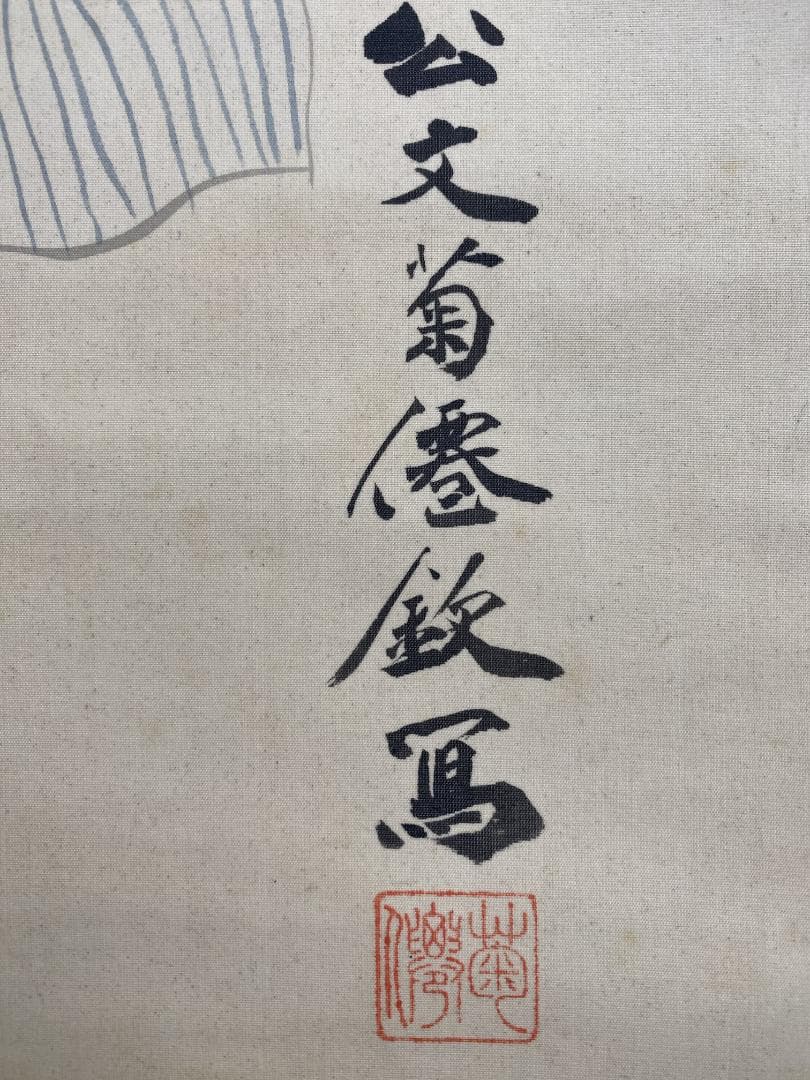 公文菊僊欽冩
菊僊